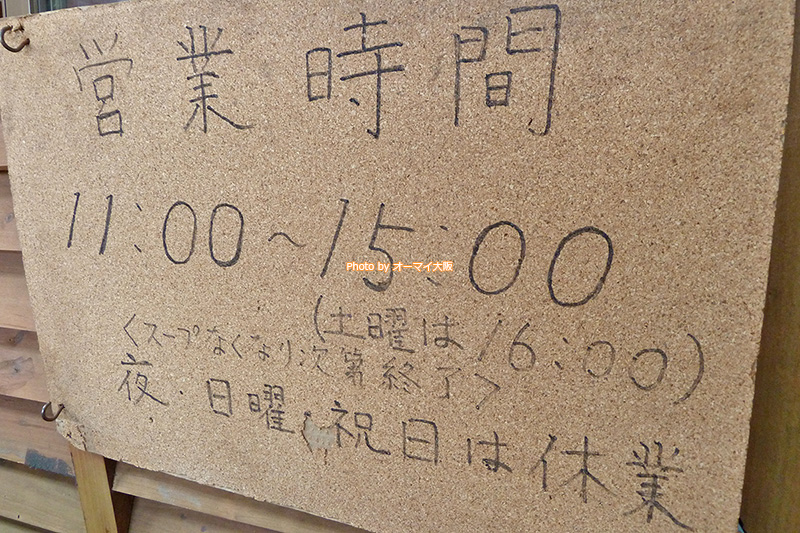 営業時間
11:00～15:00
Photo by オーマイ大阪
(土曜は16:00)
〈スープなくなり次第終了〉
夜・日曜・祝日は休業